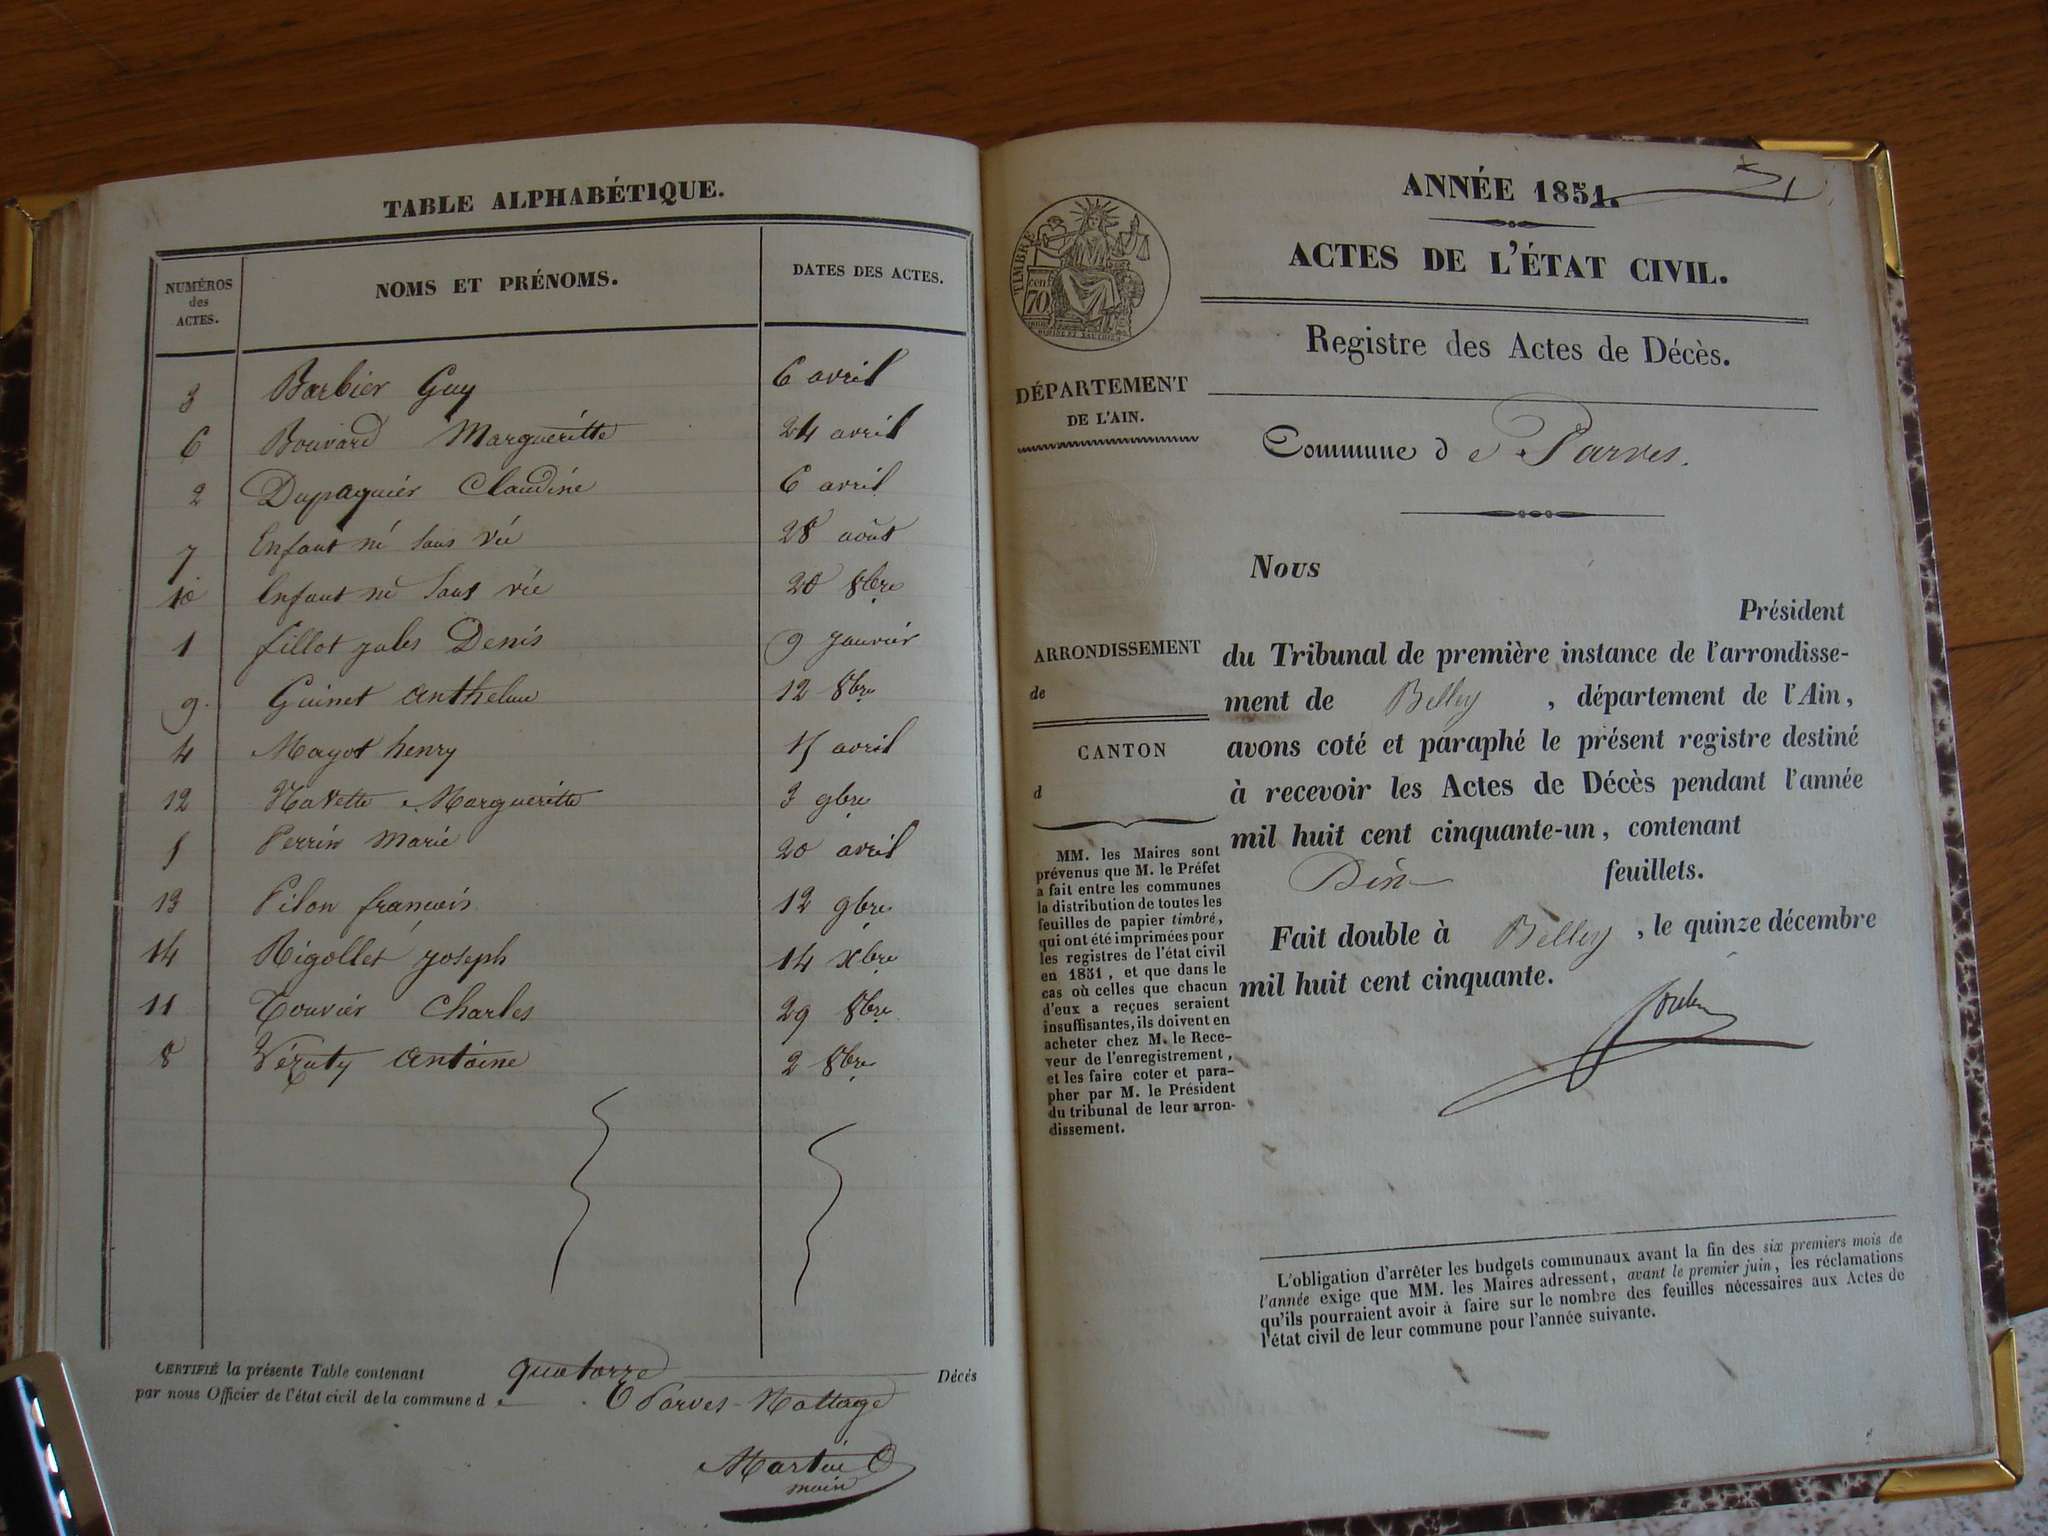 TABLE ALPHABÉTIQUE.
NUMÉROS des ACTES. NOMS ET PRÉNOMS. DATES DES ACTES.
3 Barbier Guy 6 avril
6 Bouvard Margueritte 24 avril
2 Dupaquier Claudine 6 avril
7 Enfant né sans vie 28 août
10 Enfant né sans vie 20 8bre
1 fillot jules Denis 9 janvier
9. Guinet anthelme 12 8bre
4 Mayot henry 15 avril
12 Navette Margueritte 3 9bre
5 Perrin Marie 20 avril
13 Pilon francois 12 9bre
14 Rigollet joseph 14 Xbre
11 Touvier Charles 29 8bre
8 Vézuty antoine 2 8bre
CERTIFIÉ la présente Table contenant quatorze Décés
par nous Officier de l'état civil de la commune d e Parves-Nattage
Martin
maire
51
ANNÉE 1851.
ACTES DE L'ÉTAT CIVIL.
Registre des Actes de Décès.
TIMBRE
70
DÉPARTEMENT
DE L'AIN.
Commune d e Parves.
Nous
Président
ARRONDISSEMENT
de
CANTON
d
du Tribunal de première instance de l'arrondisse-
ment de Belley, département de l'Ain,
avons coté et paraphé le présent registre destiné
à recevoir les Actes de Décès pendant l'année
mil huit cent cinquante-un, contenant
feuillets.
Fait double à Belley, le quinze décembre
mil huit cent cinquante.
MM. les Maires sont
prévenus que M. le Préfet
a fait entre les communes
la distribution de toutes les
feuilles de papier timbré,
qui ont été imprimées pour
les registres de l'état civil
en 1851, et que dans le
cas où celles que chacun
d'eux a reçues seraient
insuffisantes, ils doivent en
acheter chez M. le Rece-
veur de l'enregistrement,
et les faire coter et para-
pher par M. le Président
du tribunal de leur arron-
dissement.
L'obligation d'arrêter les budgets communaux avant la fin des six premiers mois de
l'année exige que MM. les Maires adressent, avant le premier juin, les réclamations
qu'ils pourraient avoir à faire sur le nombre des feuilles nécessaires aux Actes de
l'état civil de leur commune pour l'année suivante.